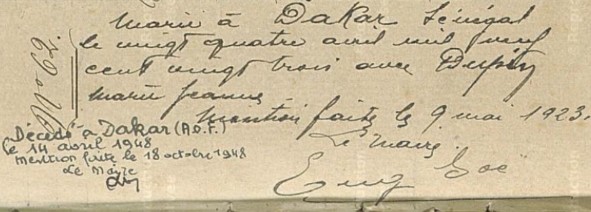 Marié à Dakar Sénégal
le vingt quatre avril mil neuf
cent vingt trois avec Dupin
Marie Jeanne
Mention faite le 9 mai 1923.
Le Maire.
Eug
Décédé à Dakar (A.O.F.)
le 14 avril 1948
mention faite le 18 octobre 1948
Le Maire